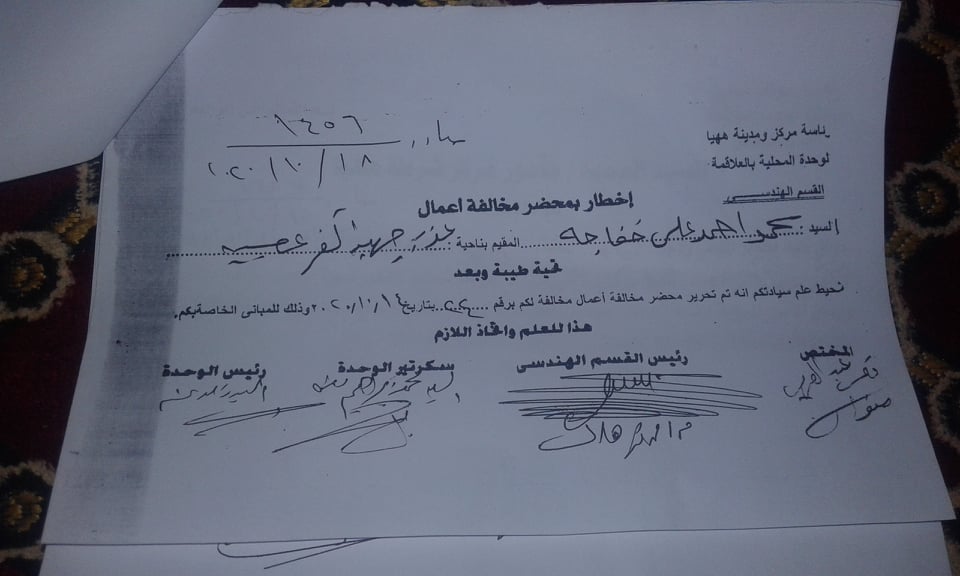 رئاسة مركز ومدينة ههيا
لوحدة المحلية بالعلاقمة
القسم الهندسى
صادر ١٤٥٦
٢٠٢٠/١٠/١٨
إخطار بمحضر مخالفة اعمال
السيد: محمد احمد على خفاجه المقيم بناحية
تحية طيبة وبعد
نحيط علم سيادتكم انه تم تحرير محضر مخالفة أعمال مخالفة لكم برقم بتاريخ ٢٠٢٠/١٠/١٤ وذلك للمبانى الخاصة بكم.
هذا للعلم واتخاذ اللازم
المختص رئيس القسم الهندسى سكرتير الوحدة رئيس الوحدة